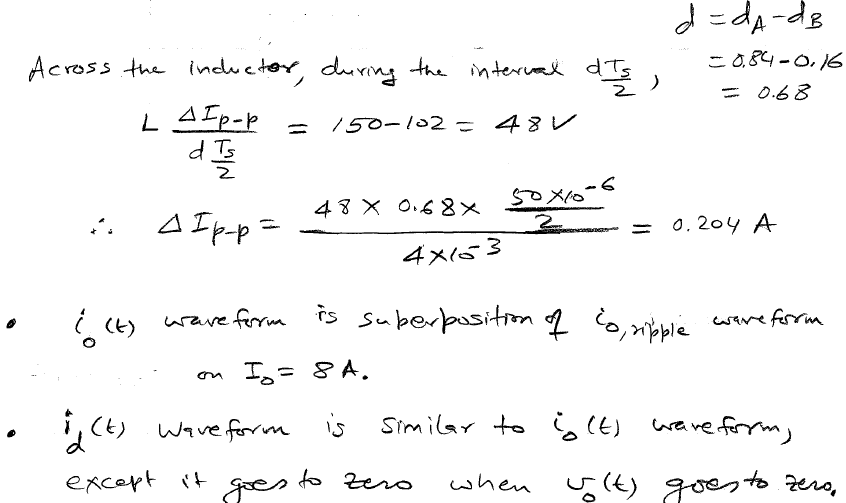 d = dA - dB
Across the inductor, during the interval dTs/2,
= 0.84 - 0.16
= 0.68
L ΔIp-p / (d Ts/2) = 150 - 102 = 48 V
∴ ΔIp-p = (48 × 0.68 × 50×10^-6/2) / (4×10^-3) = 0.204 A
• io(t) waveform is superposition of io,ripple waveform
on Io = 8 A.
• id(t) waveform is similar to io(t) waveform,
except it goes to zero when vo(t) goes to zero.